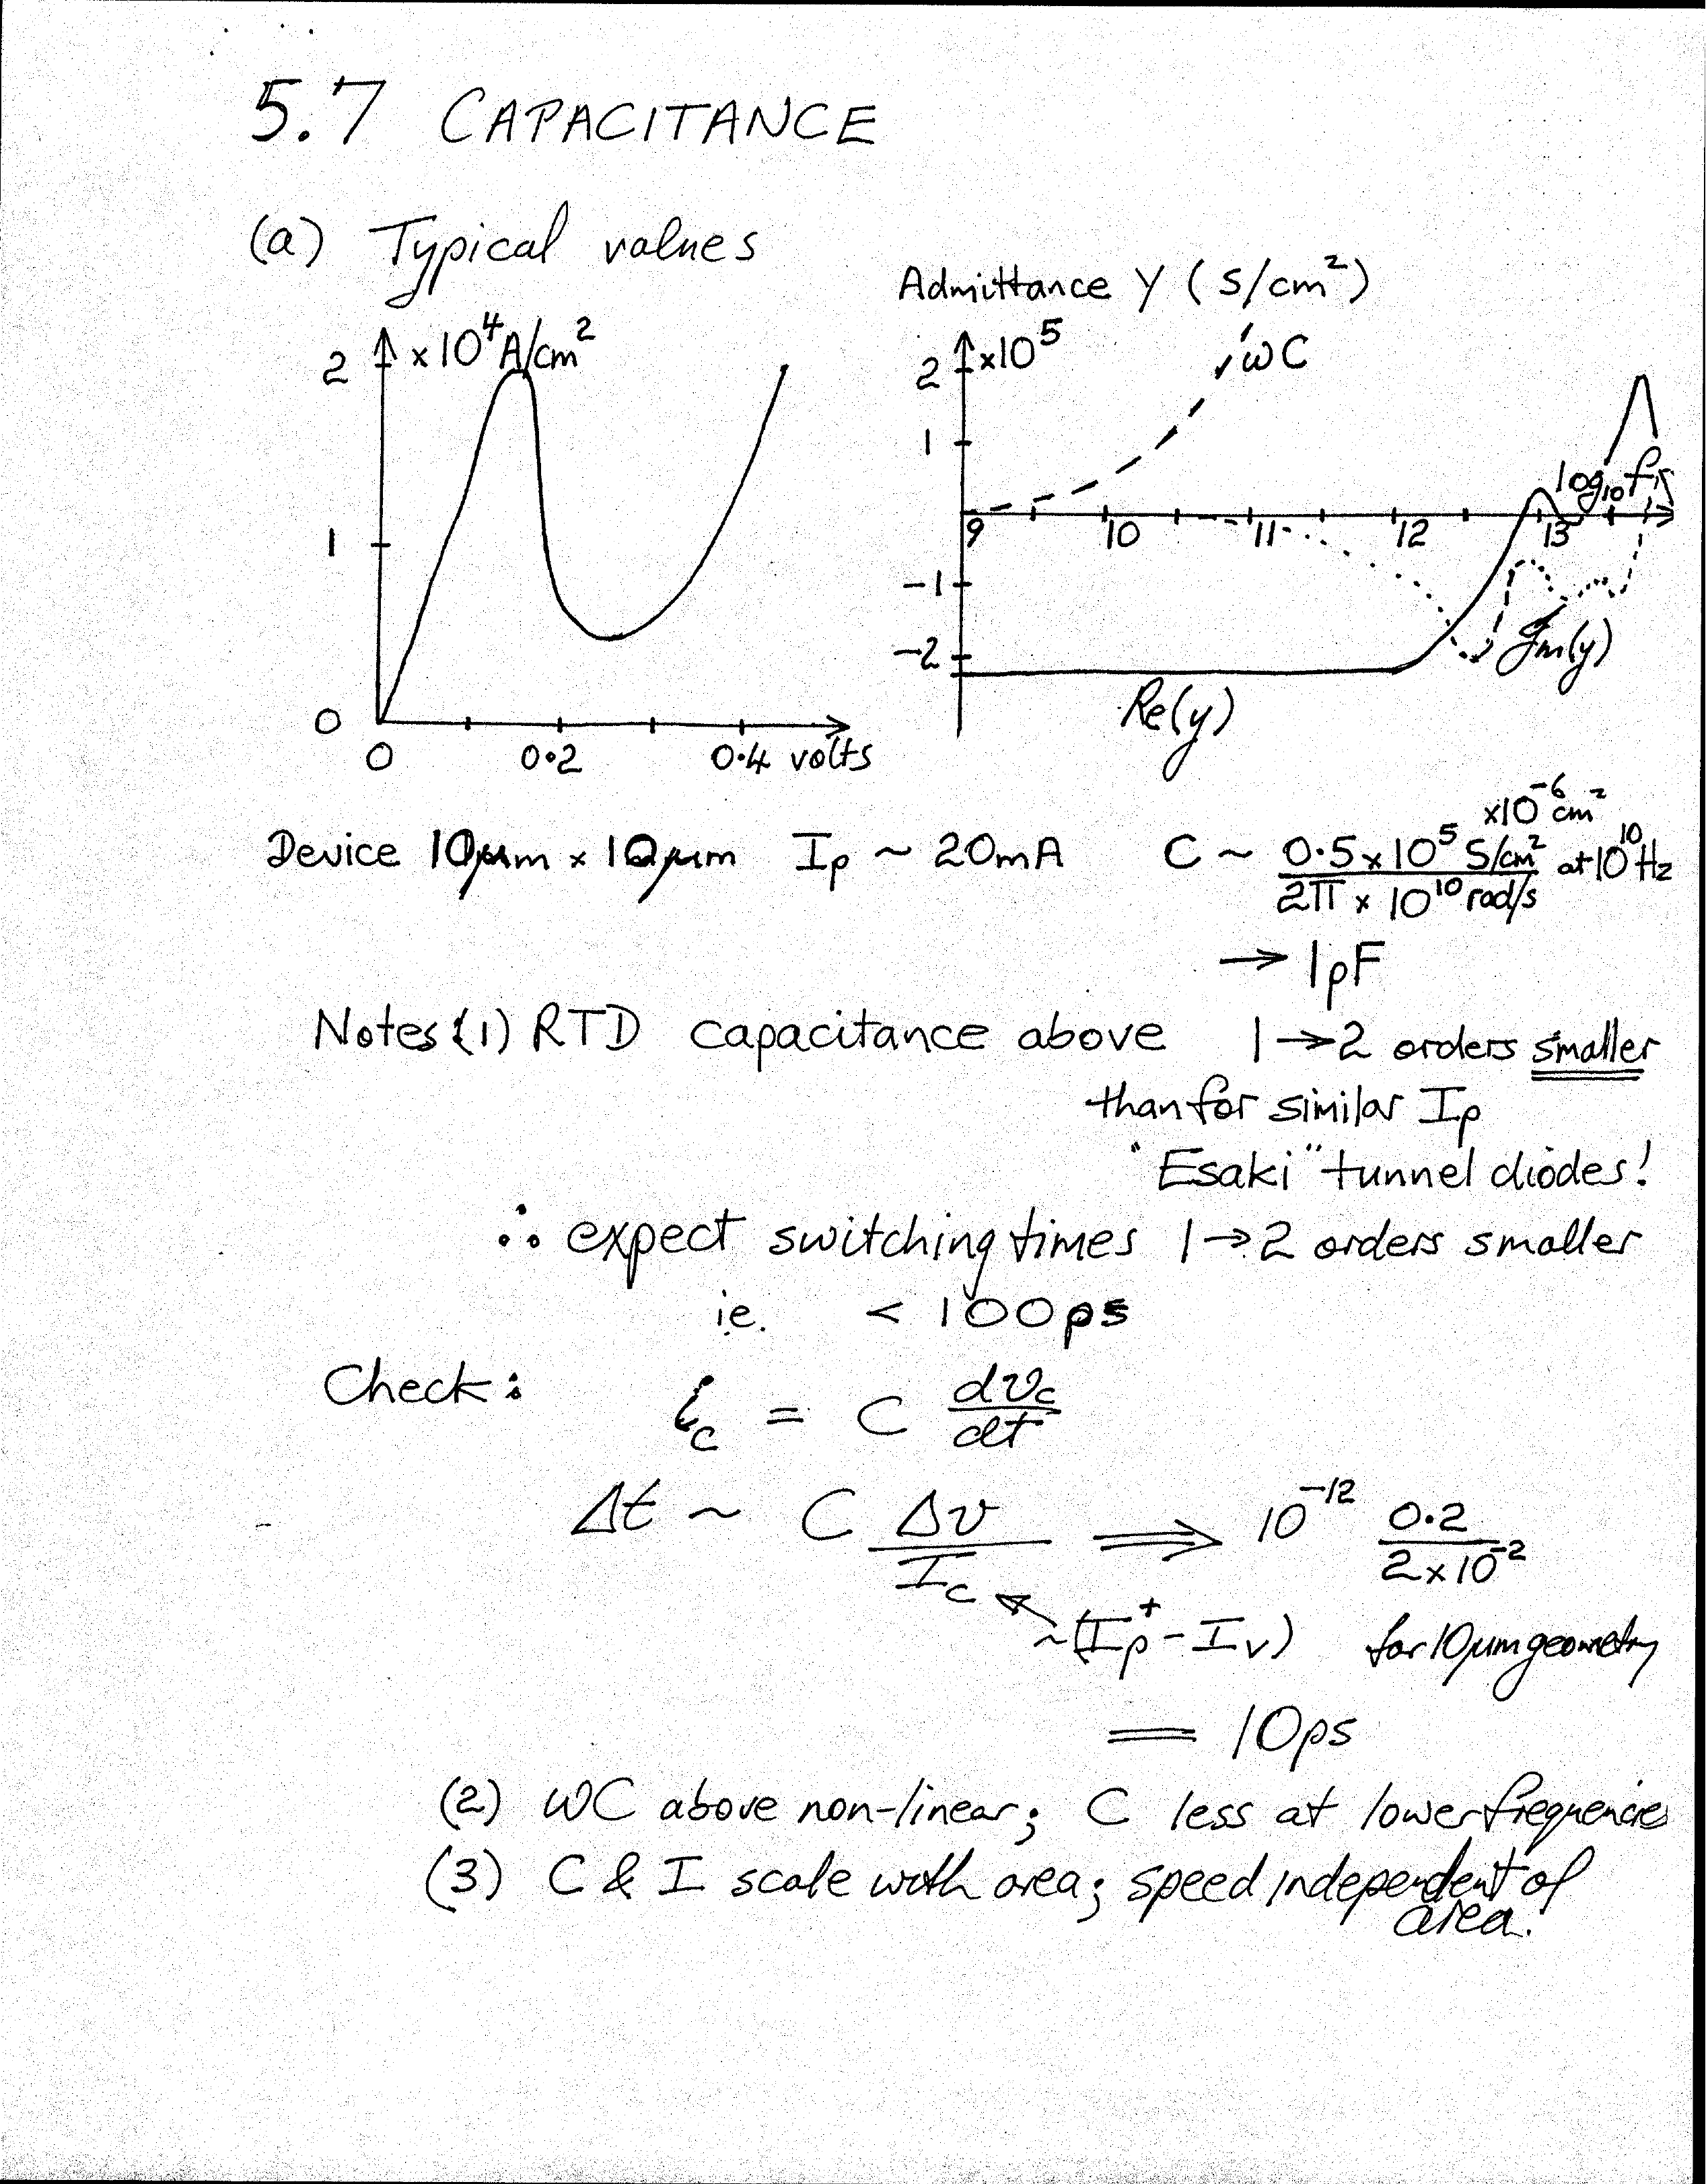 5.7 CAPACITANCE
(a) Typical values
Admittance Y (S/cm²)
2 ×10⁴ A/cm²
1
0
0 0.2 0.4 volts
2 ×10⁵ ωC
1
log₁₀ f
9 10 11 12 13
-1
-2
Im(y)
Re(y)
×10⁻⁶ cm²
Device 10μm × 10μm Ip ~ 20mA C ~ 0.5×10⁵ S/cm² at 10¹⁰ Hz
2π × 10¹⁰ rad/s
→ 1pF
Notes (1) RTD capacitance above 1→2 orders smaller
than for similar Ip
"Esaki" tunnel diodes!
∴ expect switching times 1→2 orders smaller
ie. < 100ps
Check: i_c = C dv_c/dt
Δt ~ C Δv/I_c ⟹ 10⁻¹² 0.2/2×10⁻²
~(Ip⁺ - Iv) for 10μm geometry
= 10ps
(2) ωC above non-linear; C less at lower frequencies
(3) C & I scale with area; speed independent of
area.